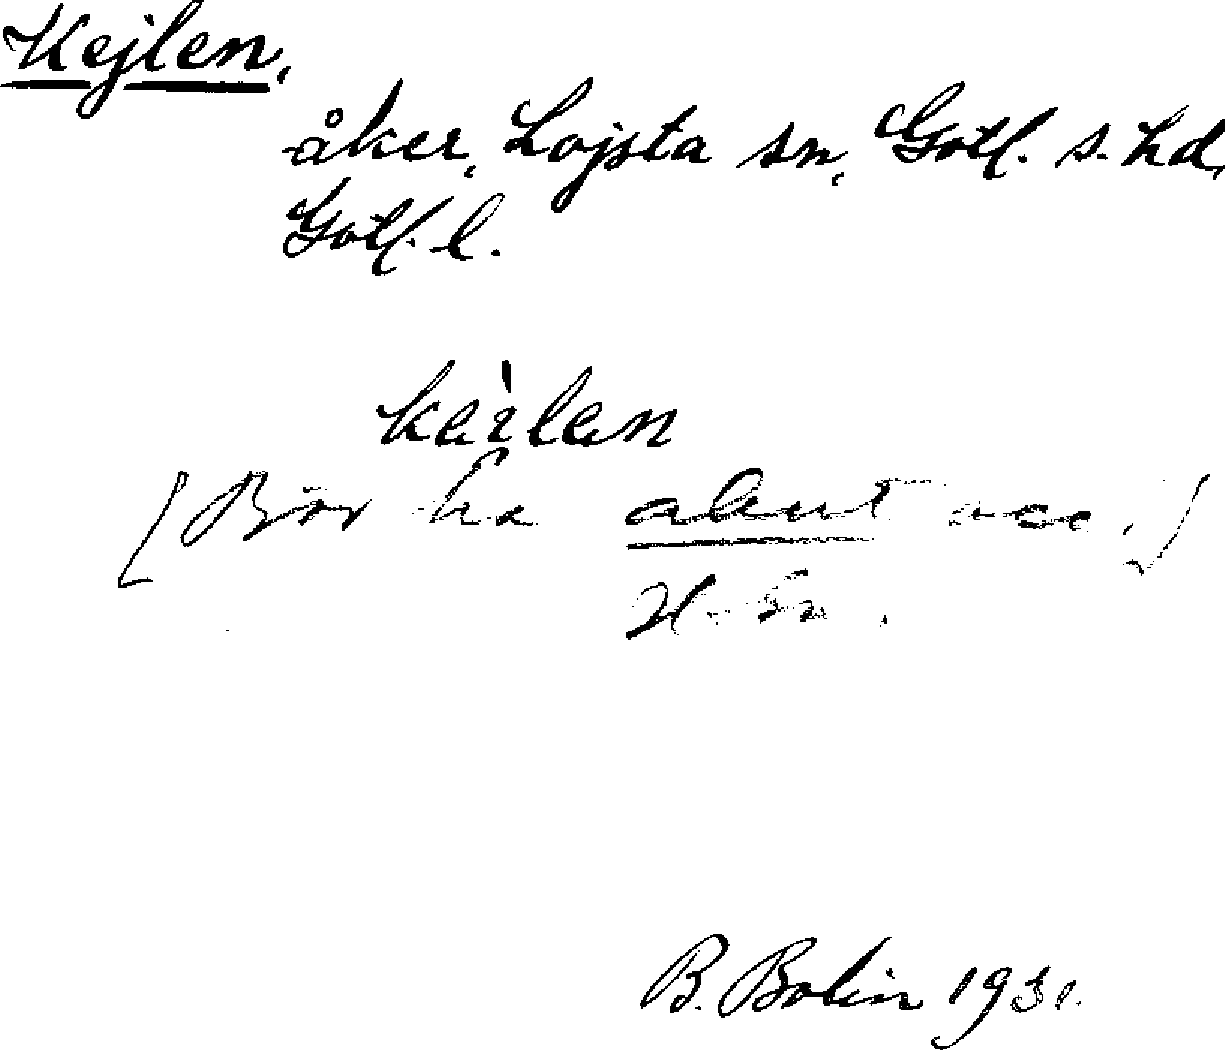 Kejlen,
åker, Lojsta sn, Gotl. s. hd,
Gotl. l.
kèilen
[Bör ha akut acc.]
B. Bolin 1931.